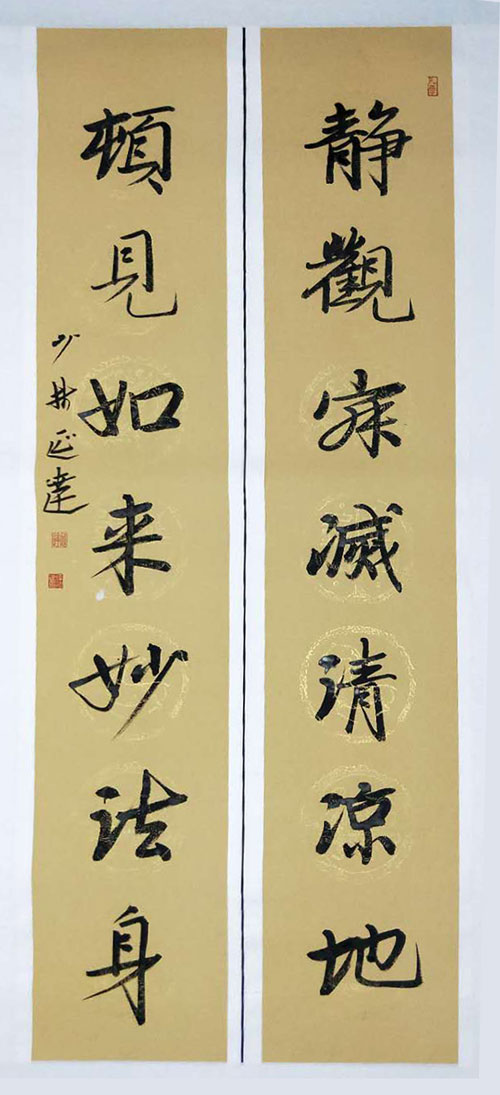 静觀寂滅清凉地
頓見如来妙法身
少林延達